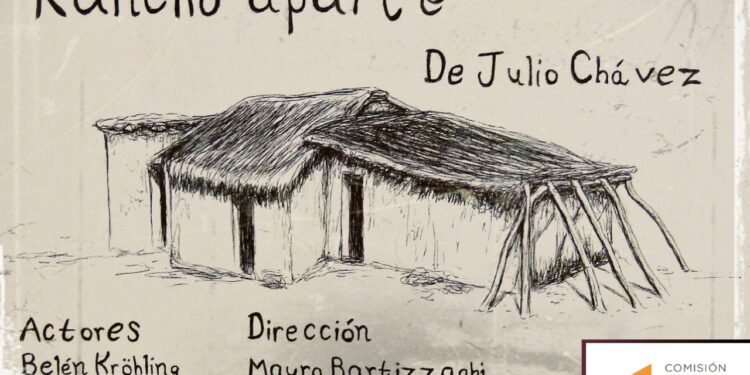 Rancho aparte
De Julio Chávez
Actores
Dirección
Belén Kröhling
Mauro Bartizzaghi
COMISIÓN